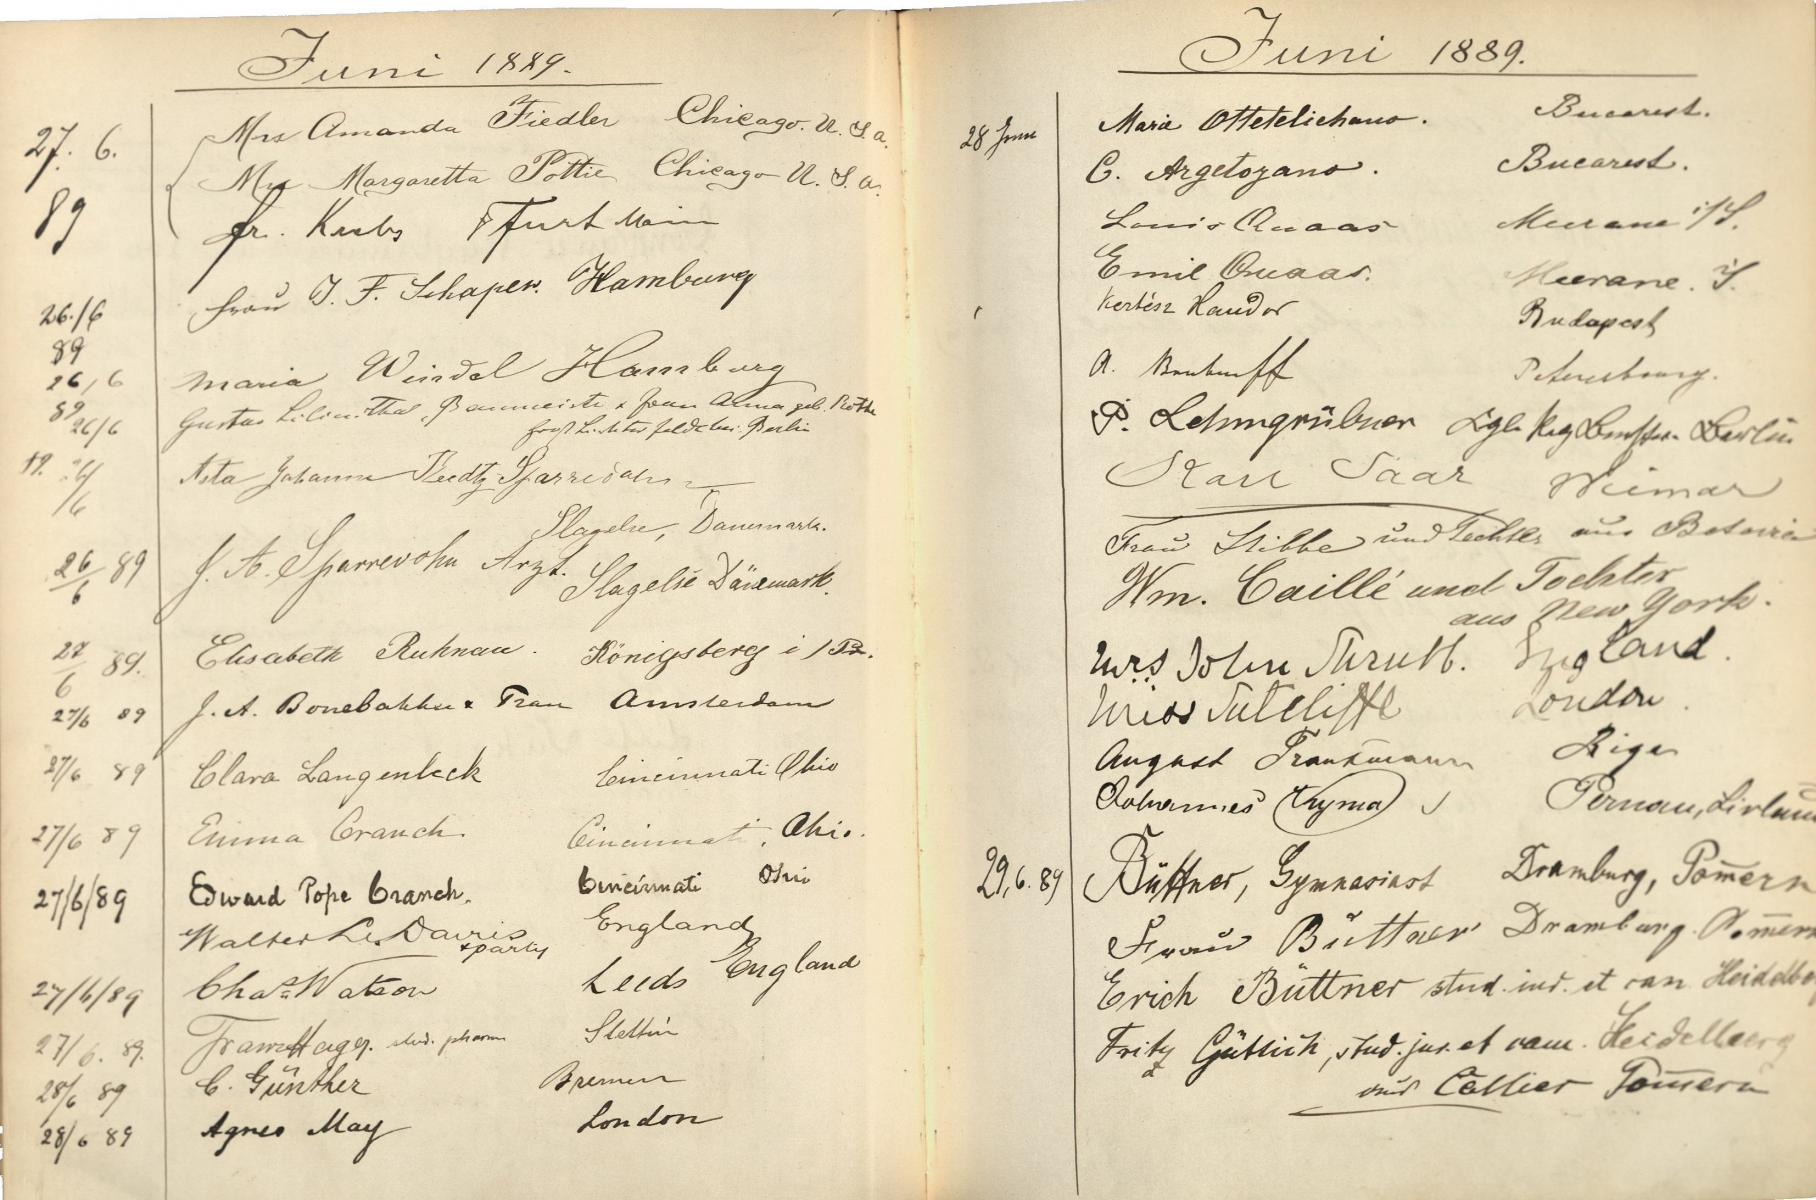 Juni 1889.
27. 6. Mrs Amanda Fiedler Chicago. U. S. a.
89 Mrs Margaretta Pottie Chicago U. S. a.
Fr. Krebs Ffurt Main
26./6 89 Frau J. F. Schaper. Hamburg
26/6 89 Maria Weidel Hamburg
26/6 Gustav Lilienthal, Baumeister & Frau Anna geb. Rothe
Groß Lichterfelde bei Berlin
Asta Johanne Reedtz Sparrevohn
Slagelse, Danemark.
26/6 89 J. A. Sparrevohn Arzt. Slagelse Dänemark.
27/6 89. Elisabeth Ruhnau. Königsberg i/Pr.
27/6 89 J. A. Bonebakker & Frau Amsterdam
27/6 89 Clara Langenbeck Cincinnati Ohio
27/6 89 Emma Cranch. Cincinnati, Ohio.
27/6/89 Edward Pope Cranch. Cincinnati Ohio
Walter L. Davis & party England
27/6/89 Chas Watson Leeds England
27/6. 89. Franz Hager. stud. pharm Stettin
28/6 89 C. Günther Bremen
28/6 89 Agnes May London
Juni 1889.
28 June Maria Ottetelichano. Bucarest.
C. Argetoyano. Bucarest.
Louis Quaas Meerane i/S.
Emil Quaas. Meerane. i. S.
Kertész Nandor Budapest
A. Petersbourg.
P. Lehmgrübner Kgl. Reg. Berlin
Karl Saar Weimar
Frau Stibbe und Tochter aus Batavia
Wm. Caillé und Tochter
aus New York.
Mrs John England.
Miss Sutcliffe London.
August Trautmann Riga
Johannes Thyma Pernau, Livland
29.6.89 Büttner, Gymnasiast Dramburg, Pom̄ern
Frau Büttner Dramburg Pom̄ern
Erich Büttner stud. iur. et cam. Heidelberg
Fritz Güttich, stud. jur. et cam. Heidelberg
aus Pom̄ern